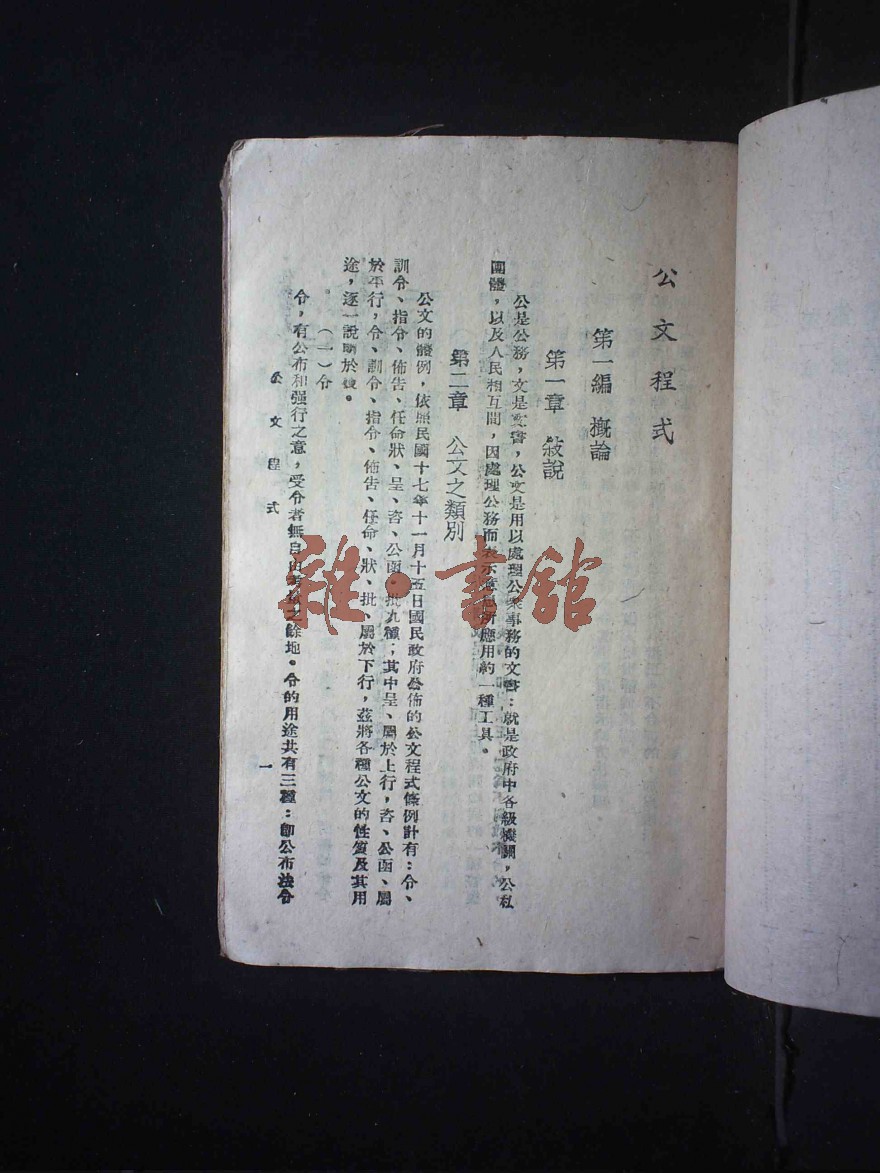 公文程式
第一編　概論
第一章　敍說
公是公務，文是文書，公文是用以處理公衆事務的文書：就是政府中各級機關，公私
團體，以及人民相互間，因處理公務而表示意思所應用約一種工具。
第二章　公文之類別
公文的體例，依照民國十七年十一月十五日國民政府公佈的公文程式條例計有：令、
訓令、指令、佈告、任命狀、呈、咨、公函、批九種；其中呈、屬於上行，咨、公函、屬
於平行，令、訓令、指令、佈告、任命、狀、批、屬於下行，茲將各種公文的性質及其用
途，逐一說明於後。
（一）令
令，有公布和强行之意，受令者無自由之餘地。令的用途共有三種：卽公布法令
公文程式
一
雜·書館